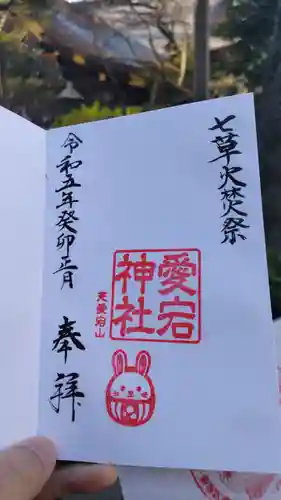 七草火焚祭
愛宕
神社
天愛宕山
令和五年癸卯正月
奉拝